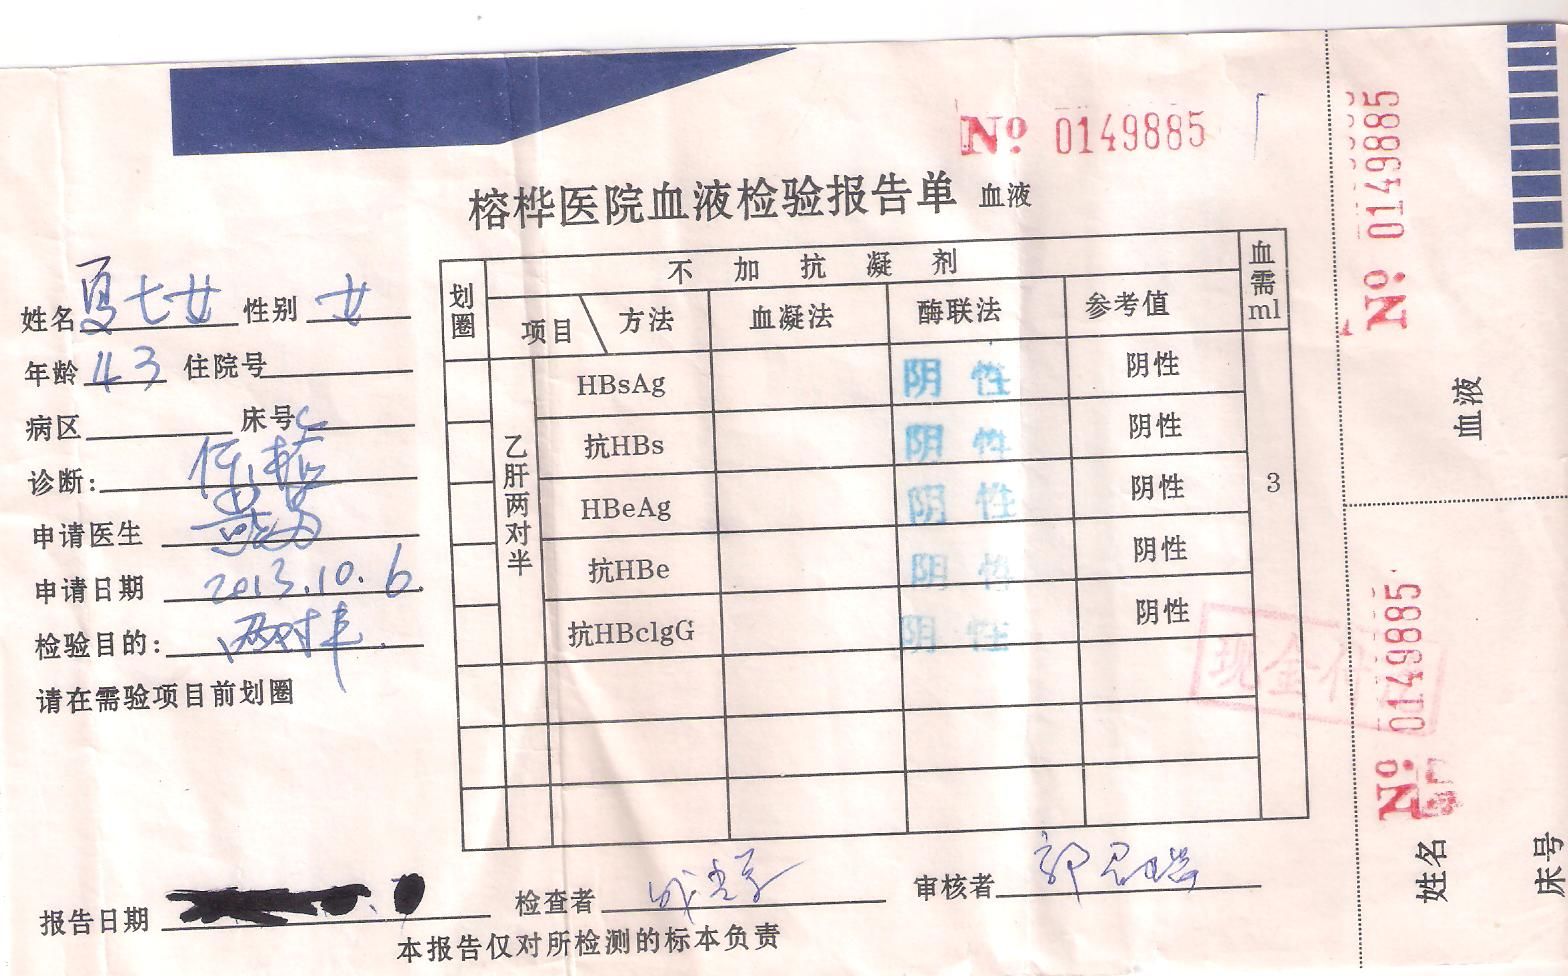 № 0149885
榕桦医院血液检验报告单 血液
姓名 夏七女 性别 女
年龄 43 住院号
病区 床号
诊断:
申请医生
申请日期 2013.10.6.
检验目的: 两对半.
请在需验项目前划圈
划圈 不加抗凝剂 血需ml
项目 方法 血凝法 酶联法 参考值
乙肝两对半
HBsAg 阴性 阴性
抗HBs 阴性 阴性
HBeAg 阴性 阴性 3
抗HBe 阴性 阴性
抗HBclgG 阴性 阴性
现金付
报告日期 检查者 审核者
本报告仅对所检测的标本负责
№ 0149885
血液
№ 0149885
姓名
床号